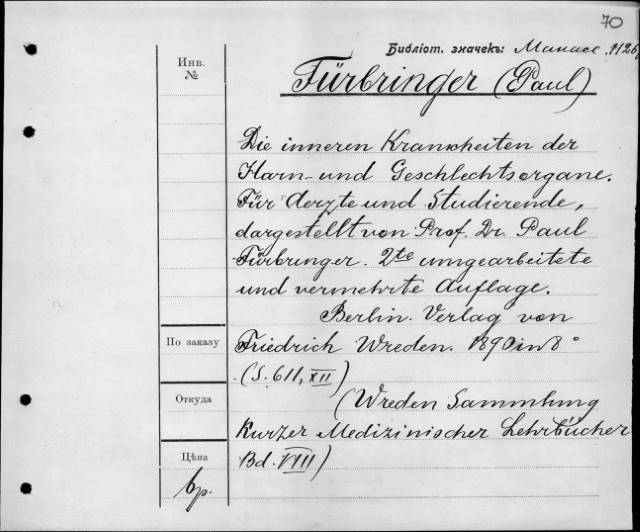 70
Библіот. значекъ: Манасс. 1126
Инв.
№
Fürbringer (Paul)
Die inneren Krankheiten der
Harn- und Geschlechtsorgane.
Für Aerzte und Studierende,
dargestellt von Prof. Dr. Paul
Fürbringer. 2te umgearbeitete
und vermehrte Auflage.
Berlin. Verlag von
По заказу
Friedrich Wreden. 1890 in 8°
(S. 611, XII)
Откуда
(Wreden Sammlung
kurzer Medizinischer Lehrbücher
Цѣна
Bd. VIII)
6р.